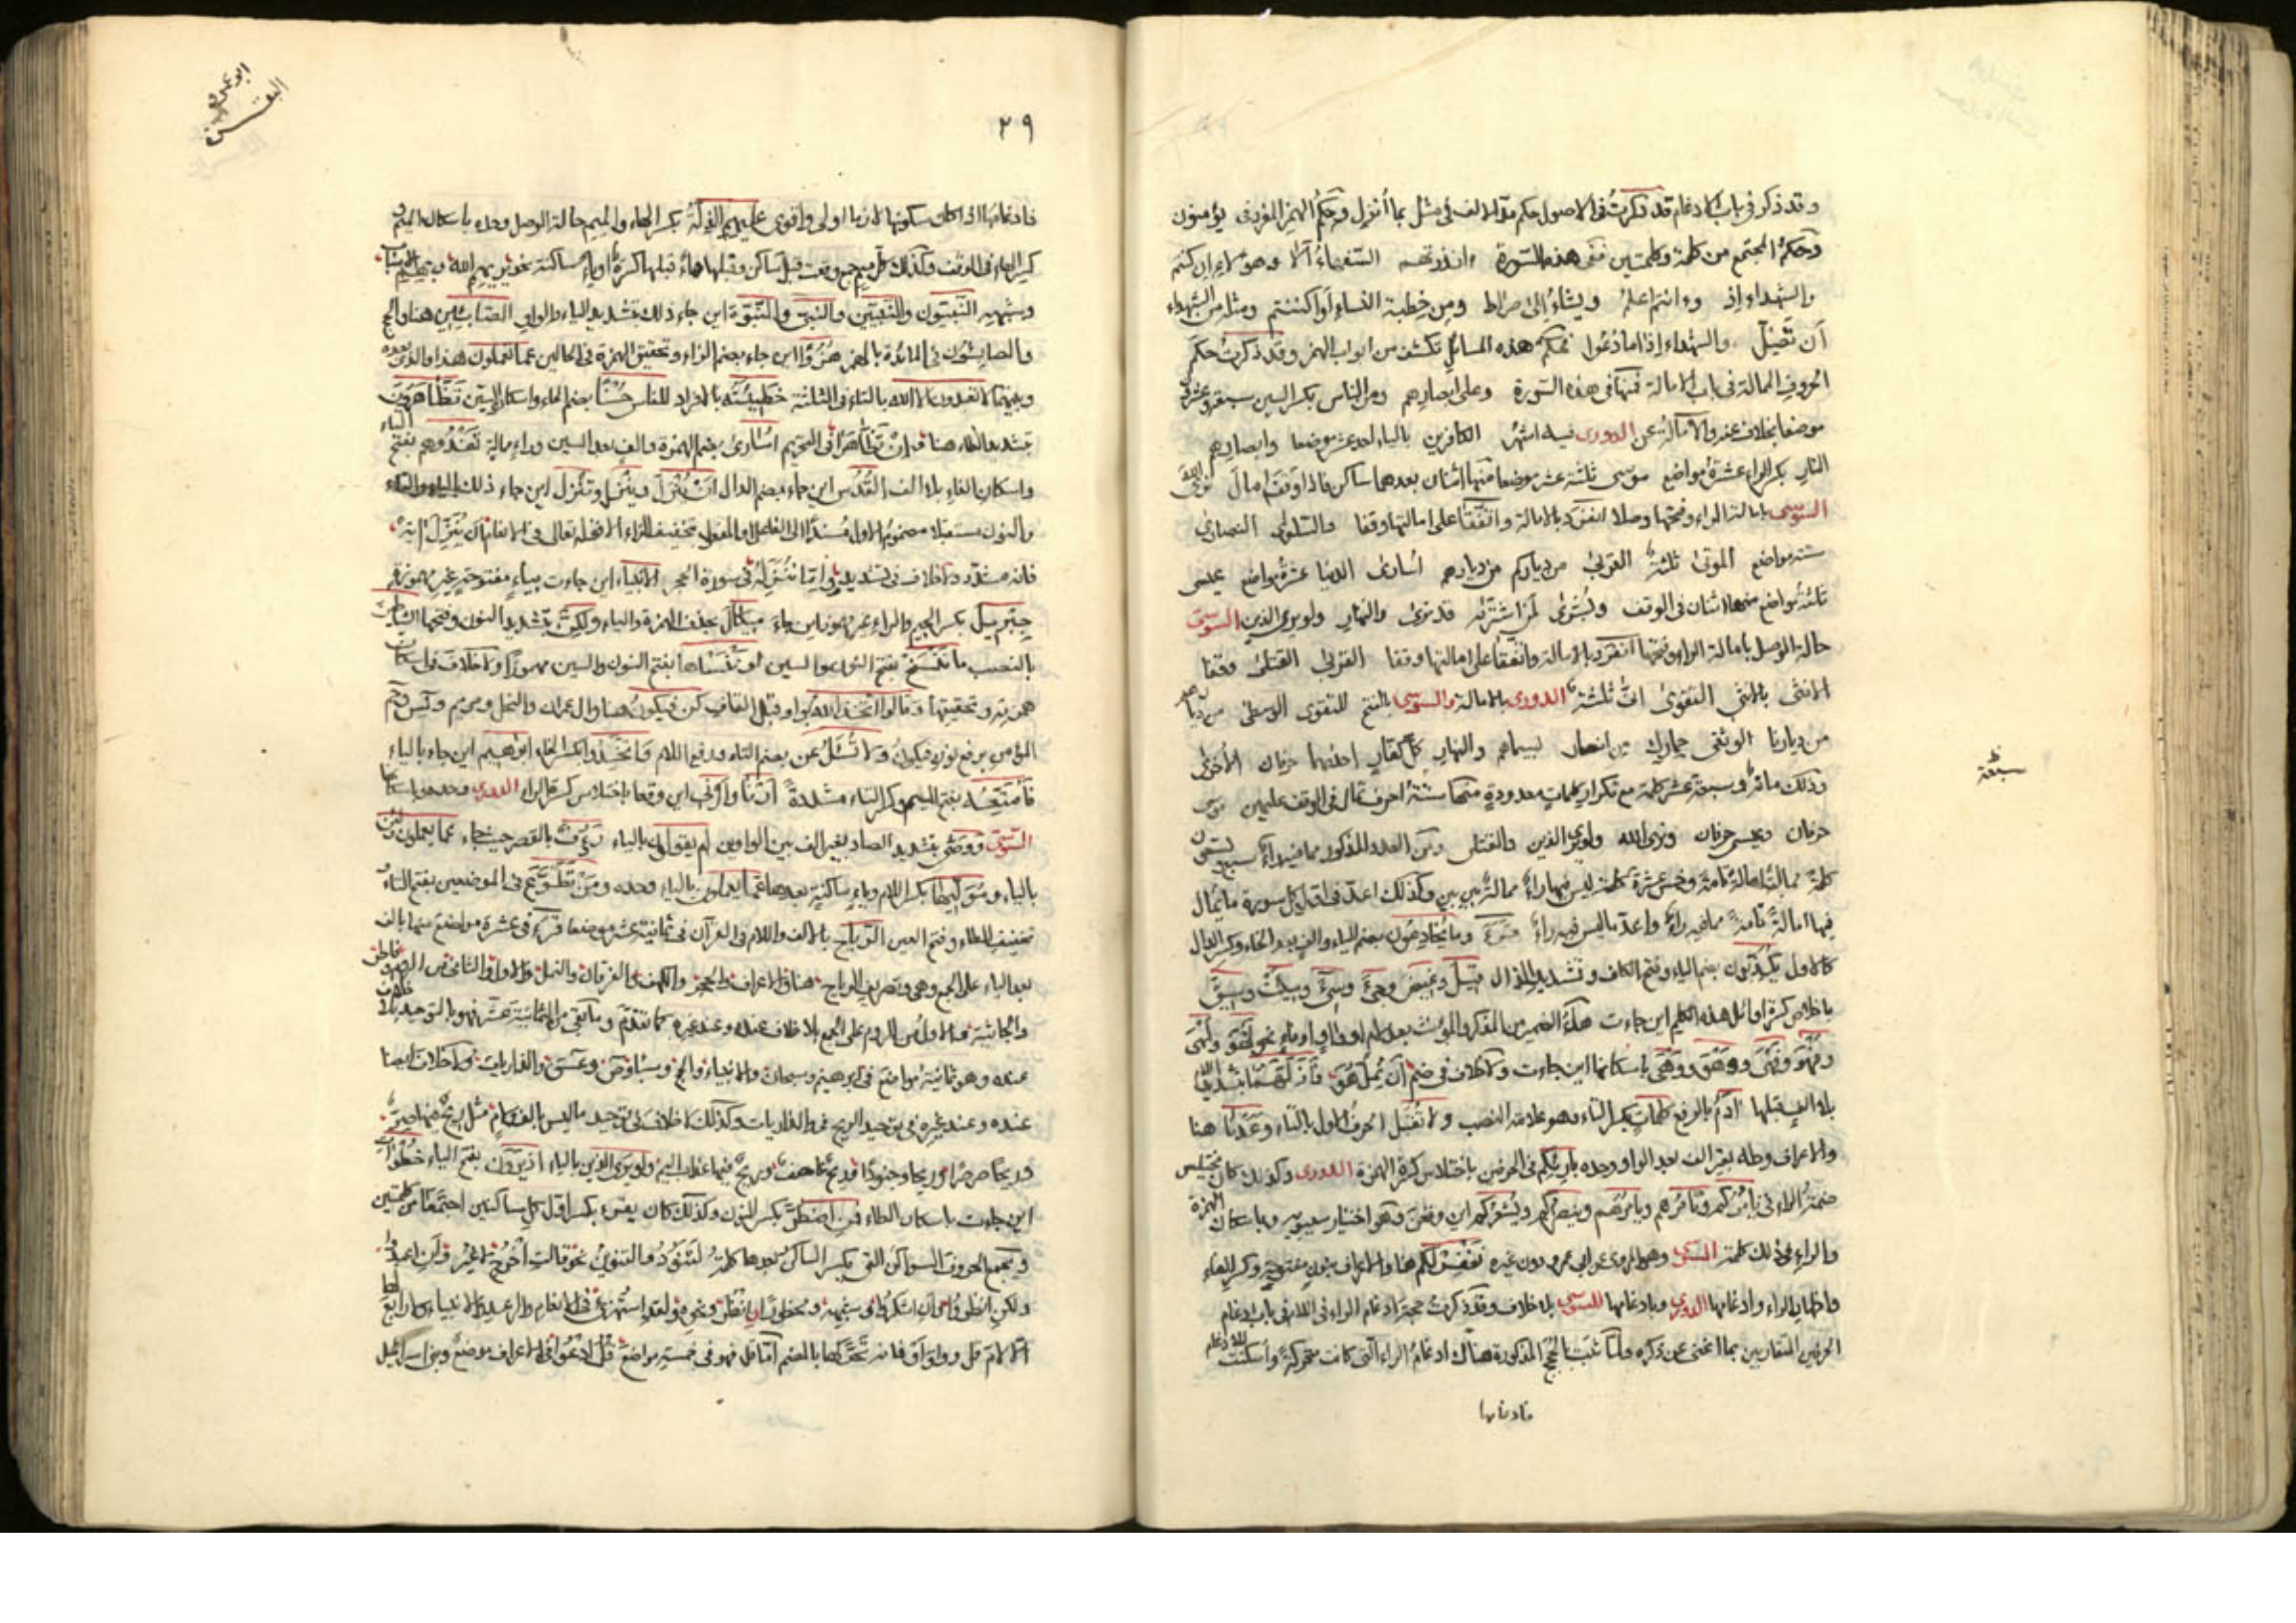 وقد ذكر في باب الادغام قد ذكرت في الاصول حكم مد الالف في مثل بما أنزل وحكم الهمز المفرد في يؤمنون
وحكم المجتمع من كلمة وكلمتين ففي هذه السورة ءانذرتهم السفهاء ألا وهؤلاء ان كنتم
والشهداء اذ وءانتم اعلم ويشاء الى صراط ومن خطبة النساء أو اكننتم ومثله من الشهداء
أن تضل والشهداء إذا ما دعوا فحكم هذه المسائل تكشف من ابواب الهمز وقد ذكرت حكم
الحروف الممالة في باب الامالة فمنها في هذه السورة وعلى ابصارهم ومن الناس بكسر السين سبعة عشر
موضعا بخلاف عنه والامالة عن الدوري فيه اشهر الكافرين بالياء احد عشر موضعا وابصارهم
النار بكسر الراء عشرة مواضع موسى ثلثة عشر موضعا منها اثنان بعدهما ساكن فاذا وقف امال نرى الله
السوسي بامالة الراء وفتحها وصلا انفرد بالامالة واتفقا على امالتها وقفا والسلوى النصارى
ستة مواضع الموتى ثلثة القربى من دياركم من ديارهم أسارى الدنيا عشرة مواضع عيسى
ثلثة مواضع منها اثنان في الوقف وبشرى لمن اشتراه قد نرى والنهار ولو يرى الذين السوسي
حالة الوصل بامالة الراء وفتحها انفرد بالامالة واتفقا على امالتها وقفا القربى القتلى وقفا
الانثى بالانثى التقوى انى ثلثة الدوري بالامالة والسوسي بالفتح للتقوى الوسطى من ديارهم
من ديارنا الوثقى حمارك من انصار بسيماهم والنهار كل كفار احداهما حرفان الأخرى
وذلك مائة وسبعة عشر كلمة مع تكرار كلمات معدودة منها ستة احرف تمال في الوقف عليهن موسى
سبعة
حرفان وعيسى حرفان ونرى الله ولو يرى الذين والقتلى ومن العدد المذكور مما فيه راء سبع وستون
كلمة ممالة امالة تامة وخمس عشرة كلمة ليس فيها راء ممالة بين بين وكذلك اعد في اول كل سورة ما يمال
فيها امالة تامة مما فيه راء واعد ما ليس فيه راء وما يخادعون بضم الياء والف بعد الخاء وكسر الدال
كالاول يكذبون بضم الياء وفتح الكاف وتشديد الذال قيل وغيض وجيء وسيء وسيئت وسيق
باخلاص كسرة اوائل هذه الكلم اين جاءت هاء الضمير من المذكر والمؤنث بعد لام او فاء او واو نحو لهو ولهي
وفهو وفهي ووهو ووهي باسكانها اين جاءت ولا خلاف في ضم أن يمل هو فأزلهما بتشديد اللام
بلا الف قبلها آدم بالرفع كلمات بكسر التاء وهو علامة النصب ولا تقبل الحرف الاول بالتاء وعدنا هنا
والاعراف وطه بغير الف بعد الواو وحده بارئكم في الحرفين باختلاس كسرة الهمزة الدوري وكذلك كان يختلس
ضمة الراء في يأمركم وتأمرهم ويأمرهم وينصركم ويشعركم اين وقعن وهو اختيار سيبويه وباسكان الهمزة
والراء في ذلك كلمة السوسي وهو المروي عن ابي عمرو دون غيره نغفر لكم هنا والاعراف بنون مفتوحة وكسر الفاء
واظهار الراء وادغامها الدوري وبادغامها السوسي بلا خلاف وقد ذكرت حجة ادغام الراء في اللام في باب ادغام
الحرفين المتقاربين بما اغنى عن ذكره ولما ثبت بالحجج المذكورة هناك ادغام الراء التي كانت متحركة وأسكنت للادغام
فادغامها
ابو عمرو
البقرة
٢٩
فادغامها اذا كان سكونها لازما اولى واقوى عليهم الذلة بكسر الهاء والميم حالة الوصل وحده باسكان الميم
كسر الهاء في الوقف وكذلك كل ميم جمع وقعت قبل ساكن وقبلها هاء قبلها كسرة او ياء ساكنة نحو يريهم الله
النبيون والنبيين والنبي والنبوة اين جاء ذلك بتشديد الياء والواو الصابئين هنا والحج
والصابئون في المائدة بالهمز هزؤا اين جاء بضم الزاء وتحقيق الهمزة في الحالين عما تعملون هذا والذي بعده
لا تعبدون الا الله بالتاء في الثلثة خطيئته بالافراد للناس حسنا بضم الحاء واسكان السين تظاهرون
بتشديد الظاء هنا وان تظاهرا في التحريم أسارى بضم الهمزة والف بعد السين وراء ممالة تفدوهم بفتح التاء
واسكان الفاء بلا الف القدس اين جاء بضم الدال أن ينزل وينزل وتنزل اين جاء ذلك بالياء والتاء
والنون مستقبلا مضموم الاول مسندا الى الفاعل او المفعول بتخفيف الزاء الا قوله تعالى في الانعام أن ينزل آية
فانه مشدد ولا خلاف في تشديد وما ننزله في سورة الحجر الانبياء اين جاءت بياء مفتوحة غير مهموزة
جبريل بكسر الجيم والراء غير مهموز اين جاء ميكال بحذف الهمزة والياء ولكن بتشديد النون وفتحها الشياطين
بالنصب ما ننسخ بفتح النون والسين أو ننساها بفتح النون والسين مهموزا ولا خلاف في اسكان
همزته وتحقيقها وقالوا اتخذ الله بواو قبل القاف كن فيكون هنا وال عمران والنحل ومريم ويس وحم
المؤمن برفع نون فيكون ولا تسئل عن بضم التاء ورفع اللام واتخذوا بكسر الخاء ابراهيم اين جاء بالياء
فأمتعه بفتح الميم وكسر التاء مشددة أرنا وأرني اين وقعا باختلاس كسرة الراء الدوري وحده وباسكانها
السوسي ووصى بتشديد الصاد بغير الف بين الواوين أم يقولون بالياء رؤف بالقصر حيث جاء عما يعملون ولئن
بالياء هو موليها بكسر اللام وياء ساكنة بعدها عما يعملون بالياء وحده ومن تطوع في الموضعين بفتح التاء
تخفيف الطاء وفتح العين الرياح بالالف واللام في القرآن في ثمانية عشر موضعا قرء في عشرة مواضع منها بالف
بعد الياء على الجمع وهي وتصريف الرياح هنا والاعراف والحجر والكهف والفرقان والنمل والاول والثاني من الروم وفاطر
والجاثية والاول من الروم على الجمع بلا خلاف عنده وعند غيره كما تقدم وما بقي من الثمانية عشر فهو بالتوحيد بلا خلاف
عنده وهو ثمانية مواضع في ابرهيم وسبحان والانبياء والحج وسبأ وص وعسق والذاريات ولا خلاف ايضا
عنده وعند غيره في توحيد الريح في والذاريات وكذلك لا خلاف في توحيد ما ليس بالف ولام مثل ريح فيها صر
وريحا صرصرا وريحا وجنودا وريح عاصف وريح فيها عذاب اليم ولو يرى الذين بالياء اذ يرون بفتح الياء خطوات
اين جاءت باسكان الطاء فمن اضطر بكسر النون وكذلك كان يقرء بكسر اول كل ساكنين اجتمعا من كلمتين
ويجمع الحروف السواكن التي يكسر الساكن بعدها كلمة لتنود والتنوين نحو قالت اخرج لا غير وأن اعبدوا
ولكن انظر وأن اشكر وفي شبهه ومحظورا انظر ونحوه ولقد استهزئ في الانعام والرعد والانبياء
الا لام قل وواو او فانه تحركها بالضم أما قل فهو في خمسة مواضع قل ادعوا في الاعراف موضع وبني اسرائيل